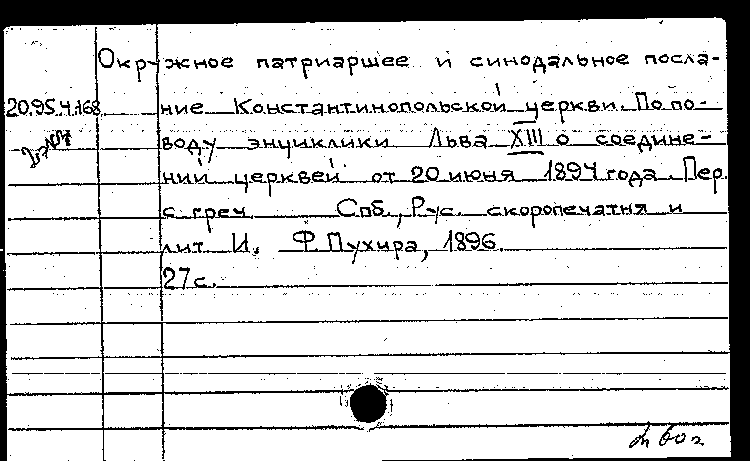 Окружное патриаршее и синодальное посла-
20.95.4.168 ние Константинопольской церкви. По по-
воду энциклики Льва XIII о соедине-
нии церквей от 20 июня 1894 года. Пер.
с греч. Спб., Рус. скоропечатня и
лит. И. Ф. Пухира, 1896.
27 с.